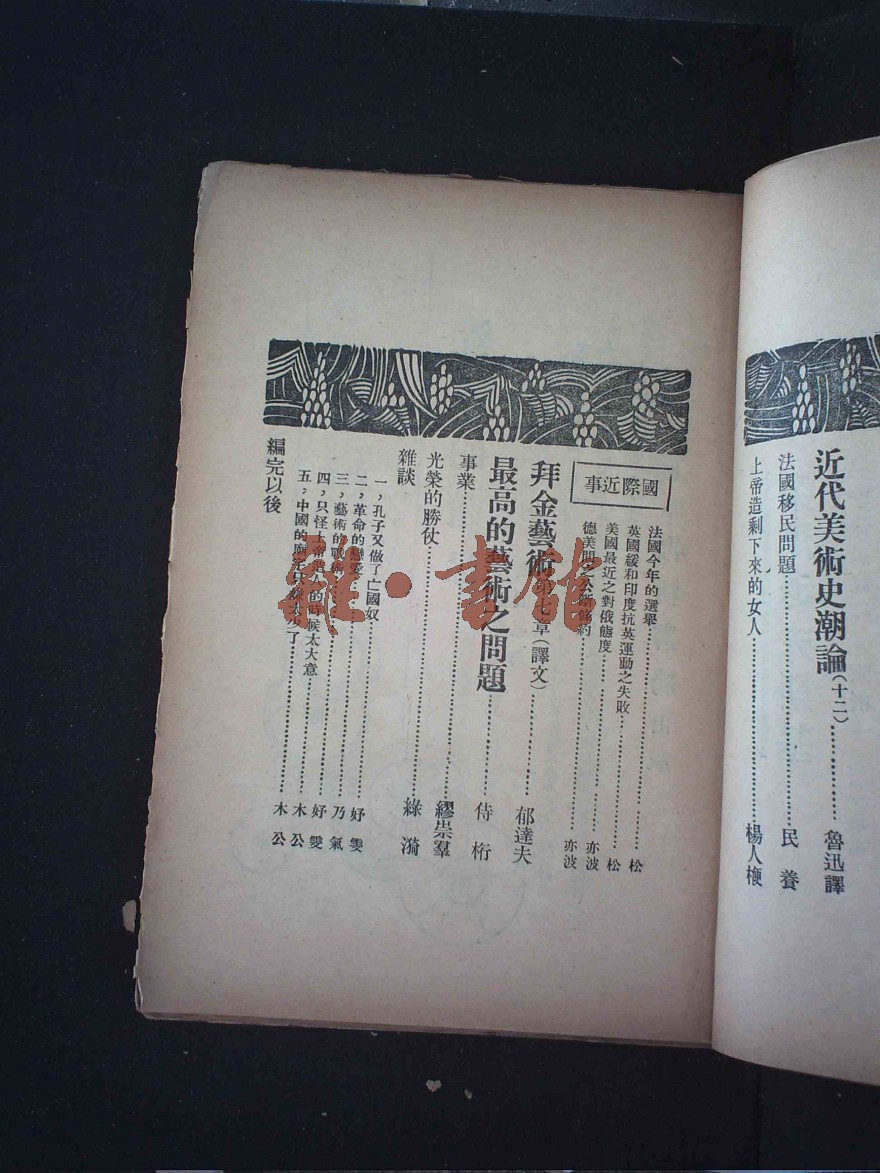 近代美術史潮論(十二)⋯⋯魯迅譯
法國移民問題⋯⋯民養
上帝造剩下來的女人⋯⋯楊人楩
國際近事
法國今年的選舉⋯⋯松
英國緩和印度抗英運動之失敗⋯⋯松
美國最近之對俄態度⋯⋯亦波
德美間之公斷條約⋯⋯亦波
拜金藝術第七章(譯文)⋯⋯郁達夫
最高的藝術之問題⋯⋯侍桁
事業⋯⋯繆崇羣
光榮的勝仗⋯⋯綠漪
雜談
一，孔子又做了亡國奴⋯⋯妤雯
二，革命的戀愛⋯⋯乃氣
三，藝術的⋯⋯妤雯
四，只怪上帝造人的時候太大意⋯⋯木公
五，中國的廟宇只嫌太少了⋯⋯木公
編完以後
雅·書館